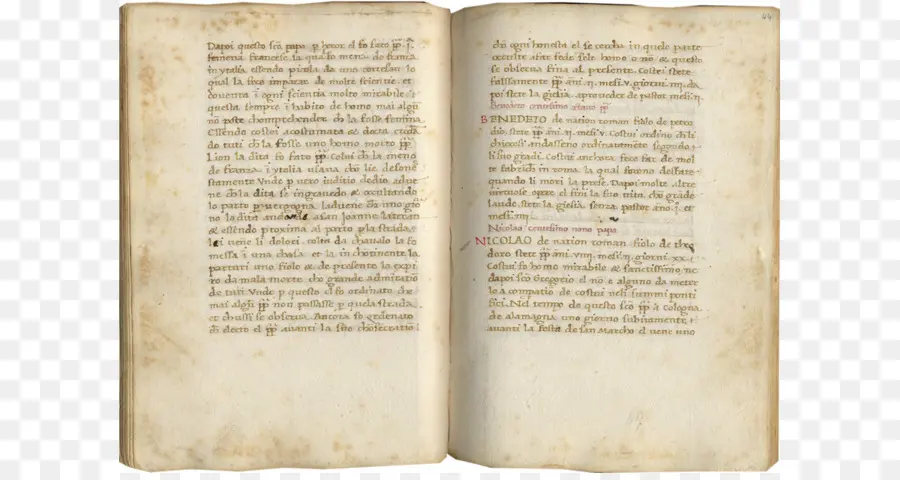 Dapoi questo sco papa p heror el fo fato pp. j.
femena francese. la qual fo mena do franza
in ytalia essendo picola da uno cortesan lo
qual la fece imparar de molte scientie. et
doventa i ogni scientia molto mirabile &
questa sempre i habito de homo mai algu
no pote chomprehender ch la fosse femina
Essendo costei acostumata & docta creda
do tuti ch la fosse uno homo morto pp.
Lion la dita fo fato pp. Colui ch la meno
de franza i ytalia usava cho lie desone
stamente Unde p vero iuditio de dio adue
ne ch la dita se ingravedo & occultando
lo parto p vergogna laduene che uno gno
no la dita andando a san Joanne lateran
& essendo proxima al parto p la strada
li vene li dolori. smonta da chavalo la fo
messa i una chasa. et la in chotinente la
parturi uno fiolo & de presente la expi
ro da mala morte cho grande admiratio
de tuti. Unde p questo el fo ordinato che
mai algun pp non passasse p quela strada.
et chussi se observa. Ancora fo ordenato
ch electo el pp avanti la suo chosecratio
44
cho ogni honesta el se cercha in quele parte
occulte aste fede sele homo o no. & questo
se observa fina al presente. Costei stete
falssamente pp. ani. ij. mesi. v. giorni. iiij. da
poi stete la giesia aprovedor de pastor mesi. ij.
Benedeto centesimo otavo pp
BENEDETO de nation roman fiolo de petro
dio. stete pp. ani. ij. mesi. v. Costui ordino ch li
chierissi andasseno ordinatamete segondo
li suo gradi. Costui anchora fece far de mol
te fabriche in roma. la qual forono desfate
quando li mori la prese. Dapoi molte altre
virtuose opere el fini la suo vita. cho grade
laude. stete la giesia senza pastor ano. j. et
mesi. iiij
Nicolao centesimo nono papa
NICOLAO de nation roman fiolo de theo
doro stete pp. ani. viiij. mesi. ij. giorni. xx.
Costui fo homo mirabile & sanctissimo ne
dapoi sco Gregorio el no e alguno da meter
la a compatio de costui neli summi ponti
fici. Nel tempo da questo sco pp. a cologna
de alamagna uno giorno subitamente
avanti la festa de san Marcho el vene uno